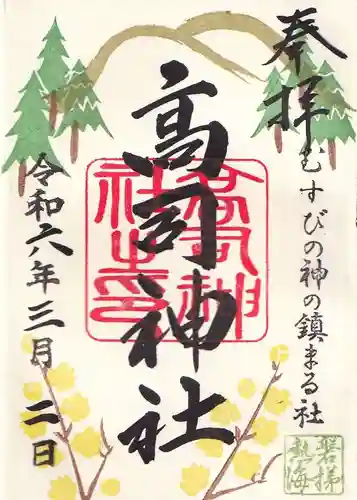 奉拝
むすびの神の鎮まる社
高司神社
高司神社之印
令和六年三月二日
磐梯熱海